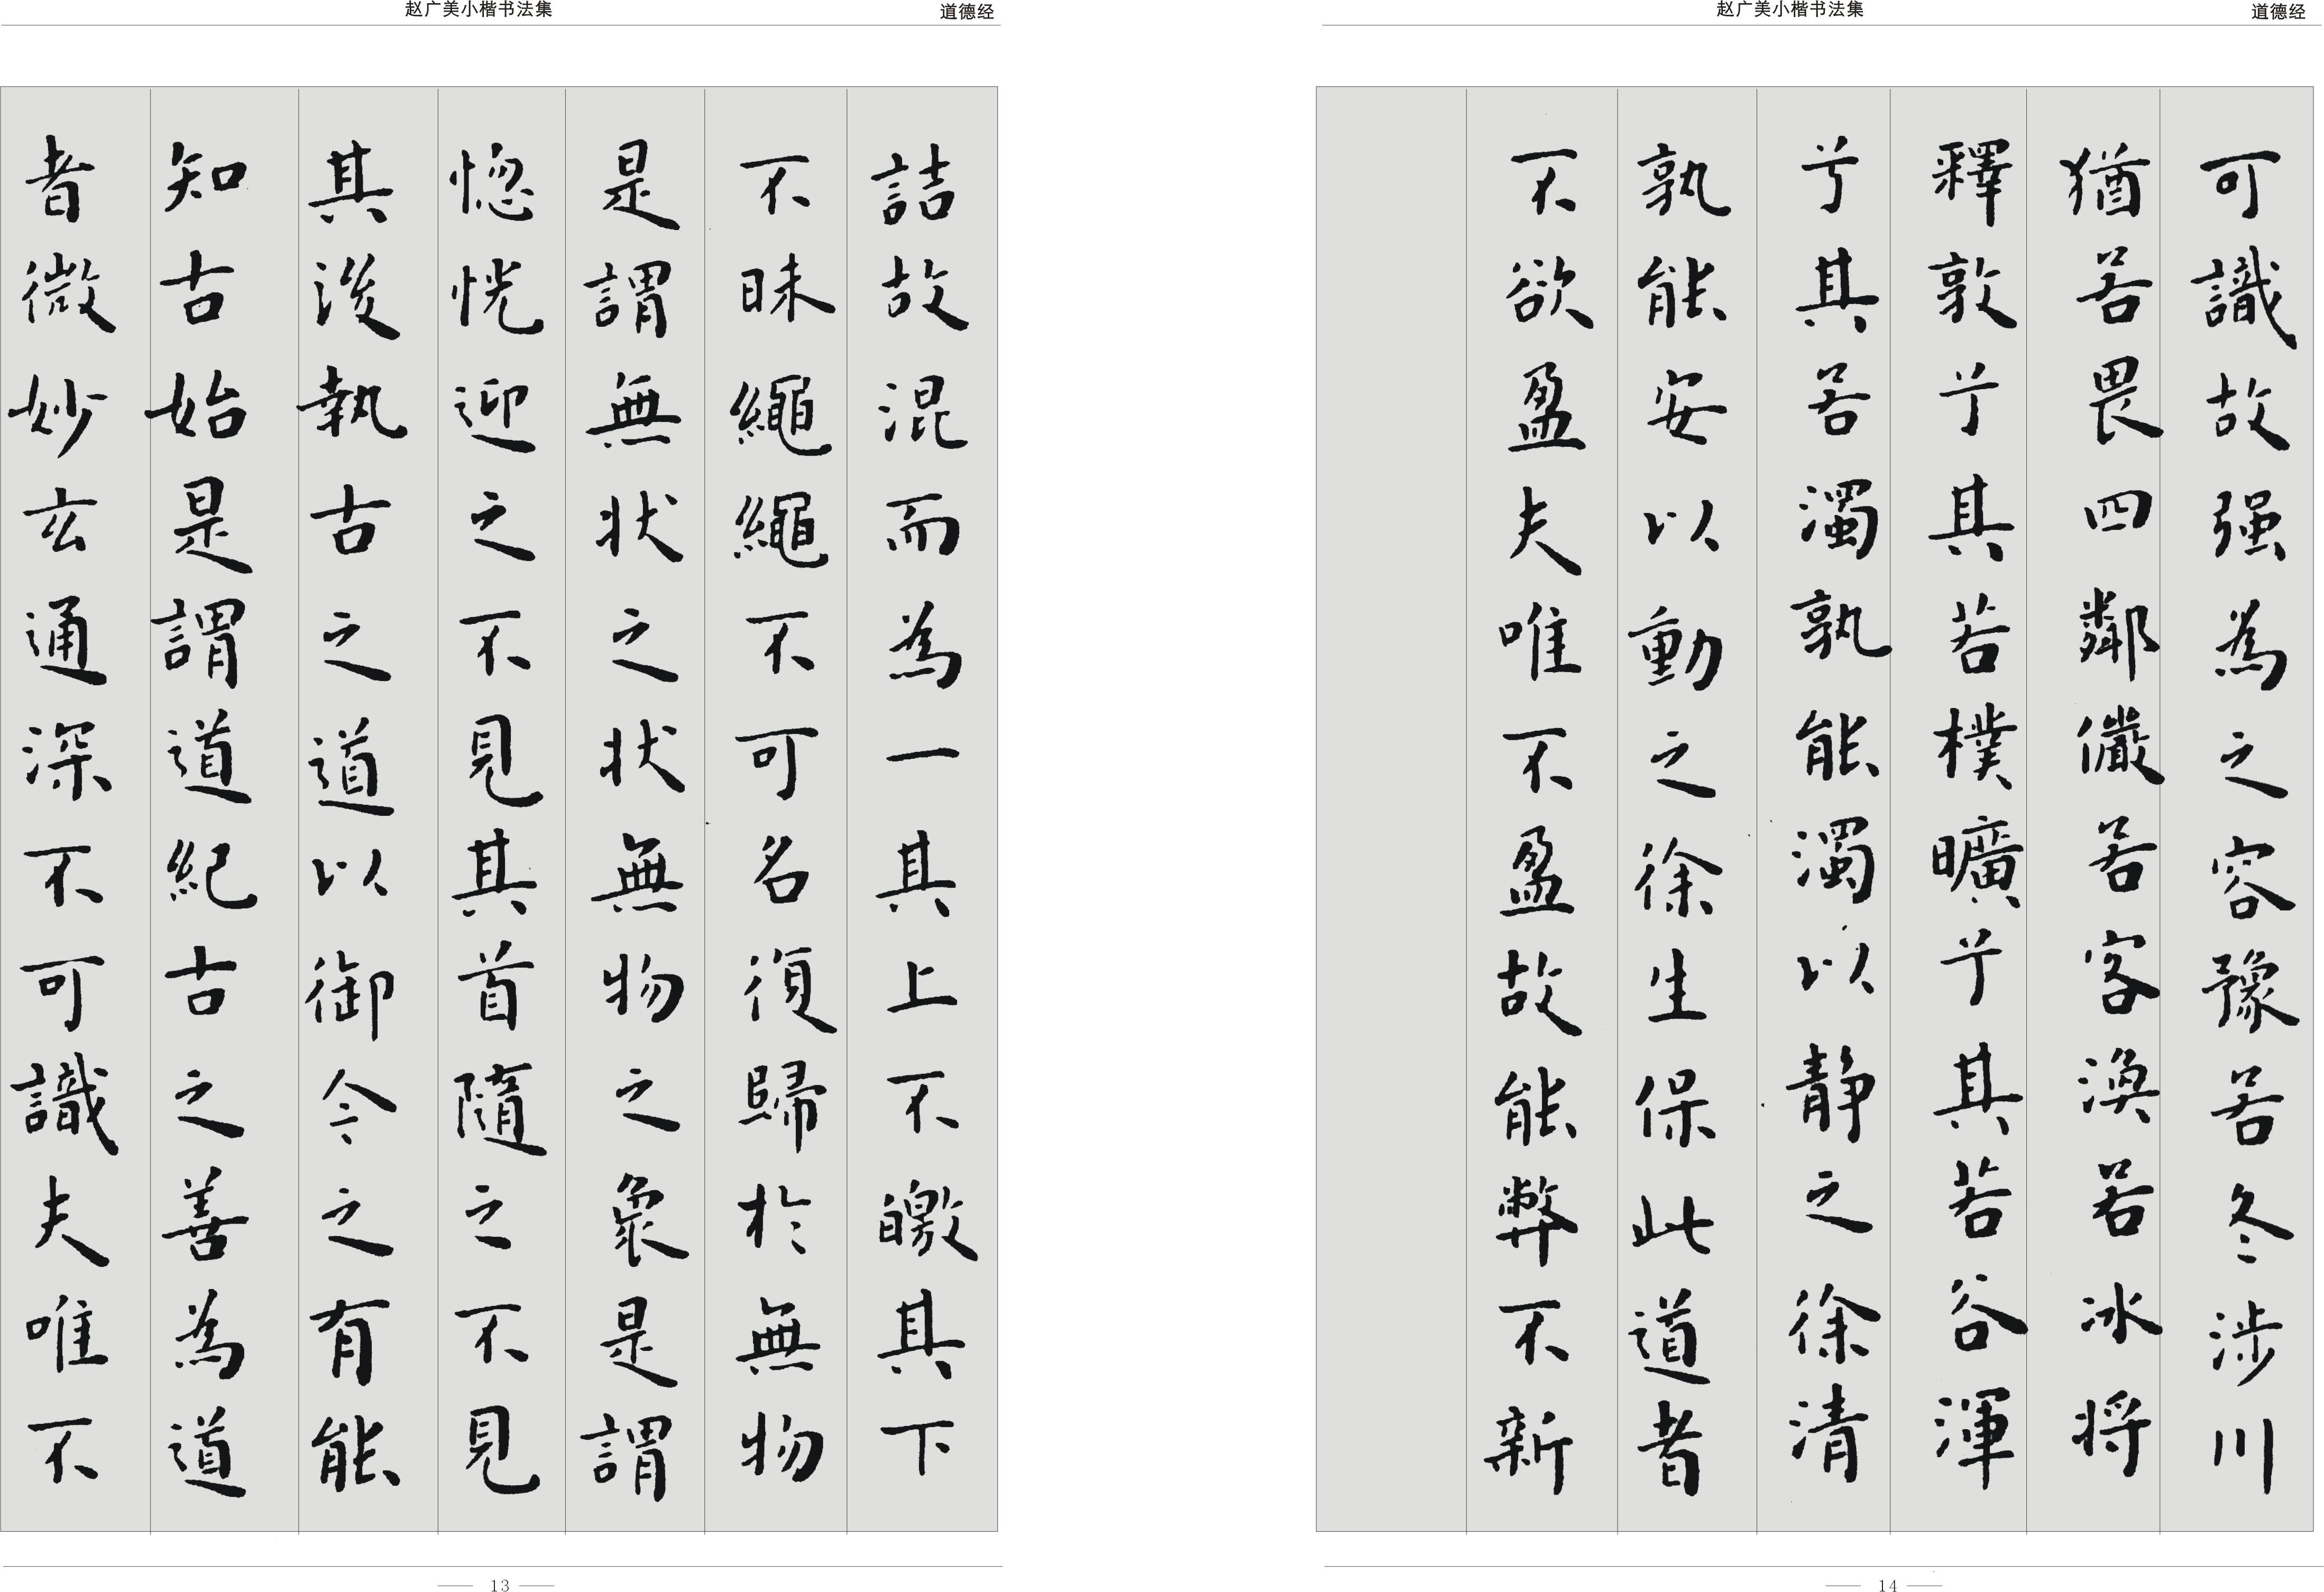 赵广美小楷书法集
道德经
詰故混而為一其上不皦其下
不昧繩繩不可名復歸於無物
是謂無狀之狀無物之象是謂
惚恍迎之不見其首隨之不見
其後執古之道以御今之有能
知古始是謂道紀古之善為道
者微妙玄通深不可識夫唯不
13
赵广美小楷书法集
道德经
可識故强為之容豫若冬涉川
猶若畏四鄰儼若客渙若冰将
釋敦兮其若樸曠兮其若谷渾
兮其若濁孰能濁以静之徐清
孰能安以動之徐生保此道者
不欲盈夫唯不盈故能弊不新
14